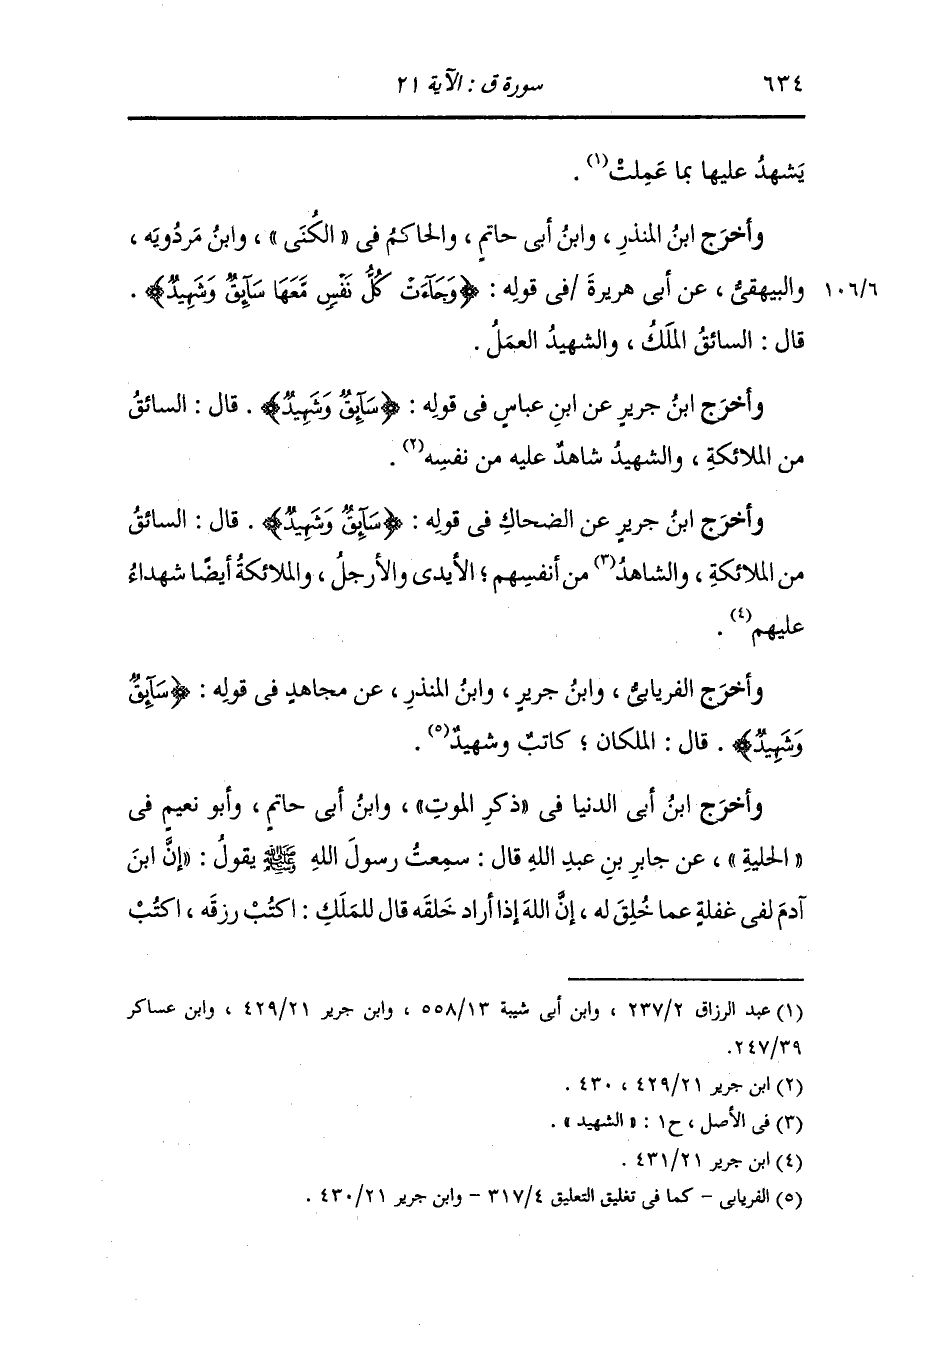 ٦٣٤ سورة ق : الآية ٢١
يَشهدُ عليها بما عَمِلتْ(١) .
وأخرَج ابنُ المنذرِ ، وابنُ أبى حاتمٍ ، والحاكمُ فى « الكُنَى » ، وابنُ مَردُويَه ،
١٠٦/٦ والبيهقىُّ ، عن أبى هريرةَ /فى قولِه : ﴿وَجَآءَتْ كُلُّ نَفْسٍ مَّعَهَا سَآئِقٌ وَشَهِيدٌ﴾ .
قال : السائقُ المَلَكُ ، والشهيدُ العمَلُ .
وأخرَج ابنُ جريرٍ عن ابنِ عباسٍ فى قولِه : ﴿سَآئِقٌ وَشَهِيدٌ﴾ . قال : السائقُ
من الملائكةِ ، والشهيدُ شاهدٌ عليه من نفسِه(٢) .
وأخرَج ابنُ جريرٍ عن الضحاكِ فى قولِه : ﴿سَآئِقٌ وَشَهِيدٌ﴾ . قال : السائقُ
من الملائكةِ ، والشاهدُ(٣) من أنفسِهم ؛ الأيدى والأرجلُ ، والملائكةُ أيضًا شهداءُ
عليهم(٤) .
وأخرَج الفريابىُّ ، وابنُ جريرٍ ، وابنُ المنذرِ ، عن مجاهدٍ فى قولِه : ﴿سَآئِقٌ
وَشَهِيدٌ﴾ . قال : الملكان ؛ كاتبٌ وشهيدٌ(٥) .
وأخرَج ابنُ أبى الدنيا فى «ذكرِ الموتِ» ، وابنُ أبى حاتمٍ ، وأبو نعيمٍ فى
« الحليةِ » ، عن جابرِ بنِ عبدِ اللهِ قال : سمِعتُ رسولَ اللهِ ﷺ يقولُ : «إنَّ ابنَ
آدمَ لفى غفلةٍ عما خُلِقَ له ، إنَّ اللهَ إذا أراد خَلقَه قال للمَلَكِ : اكتُبْ رزقَه ، اكتُبْ
(١) عبد الرزاق ٢٣٧/٢ ، وابن أبى شيبة ٥٥٨/١٣ ، وابن جرير ٤٢٩/٢١ ، وابن عساكر
٢٤٧/٣٩.
(٢) ابن جرير ٤٢٩/٢١ ، ٤٣٠ .
(٣) فى الأصل ، ح١ : « الشهيد » .
(٤) ابن جرير ٤٣١/٢١ .
(٥) الفريابى - كما فى تغليق التعليق ٣١٧/٤ - وابن جرير ٤٣٠/٢١ .